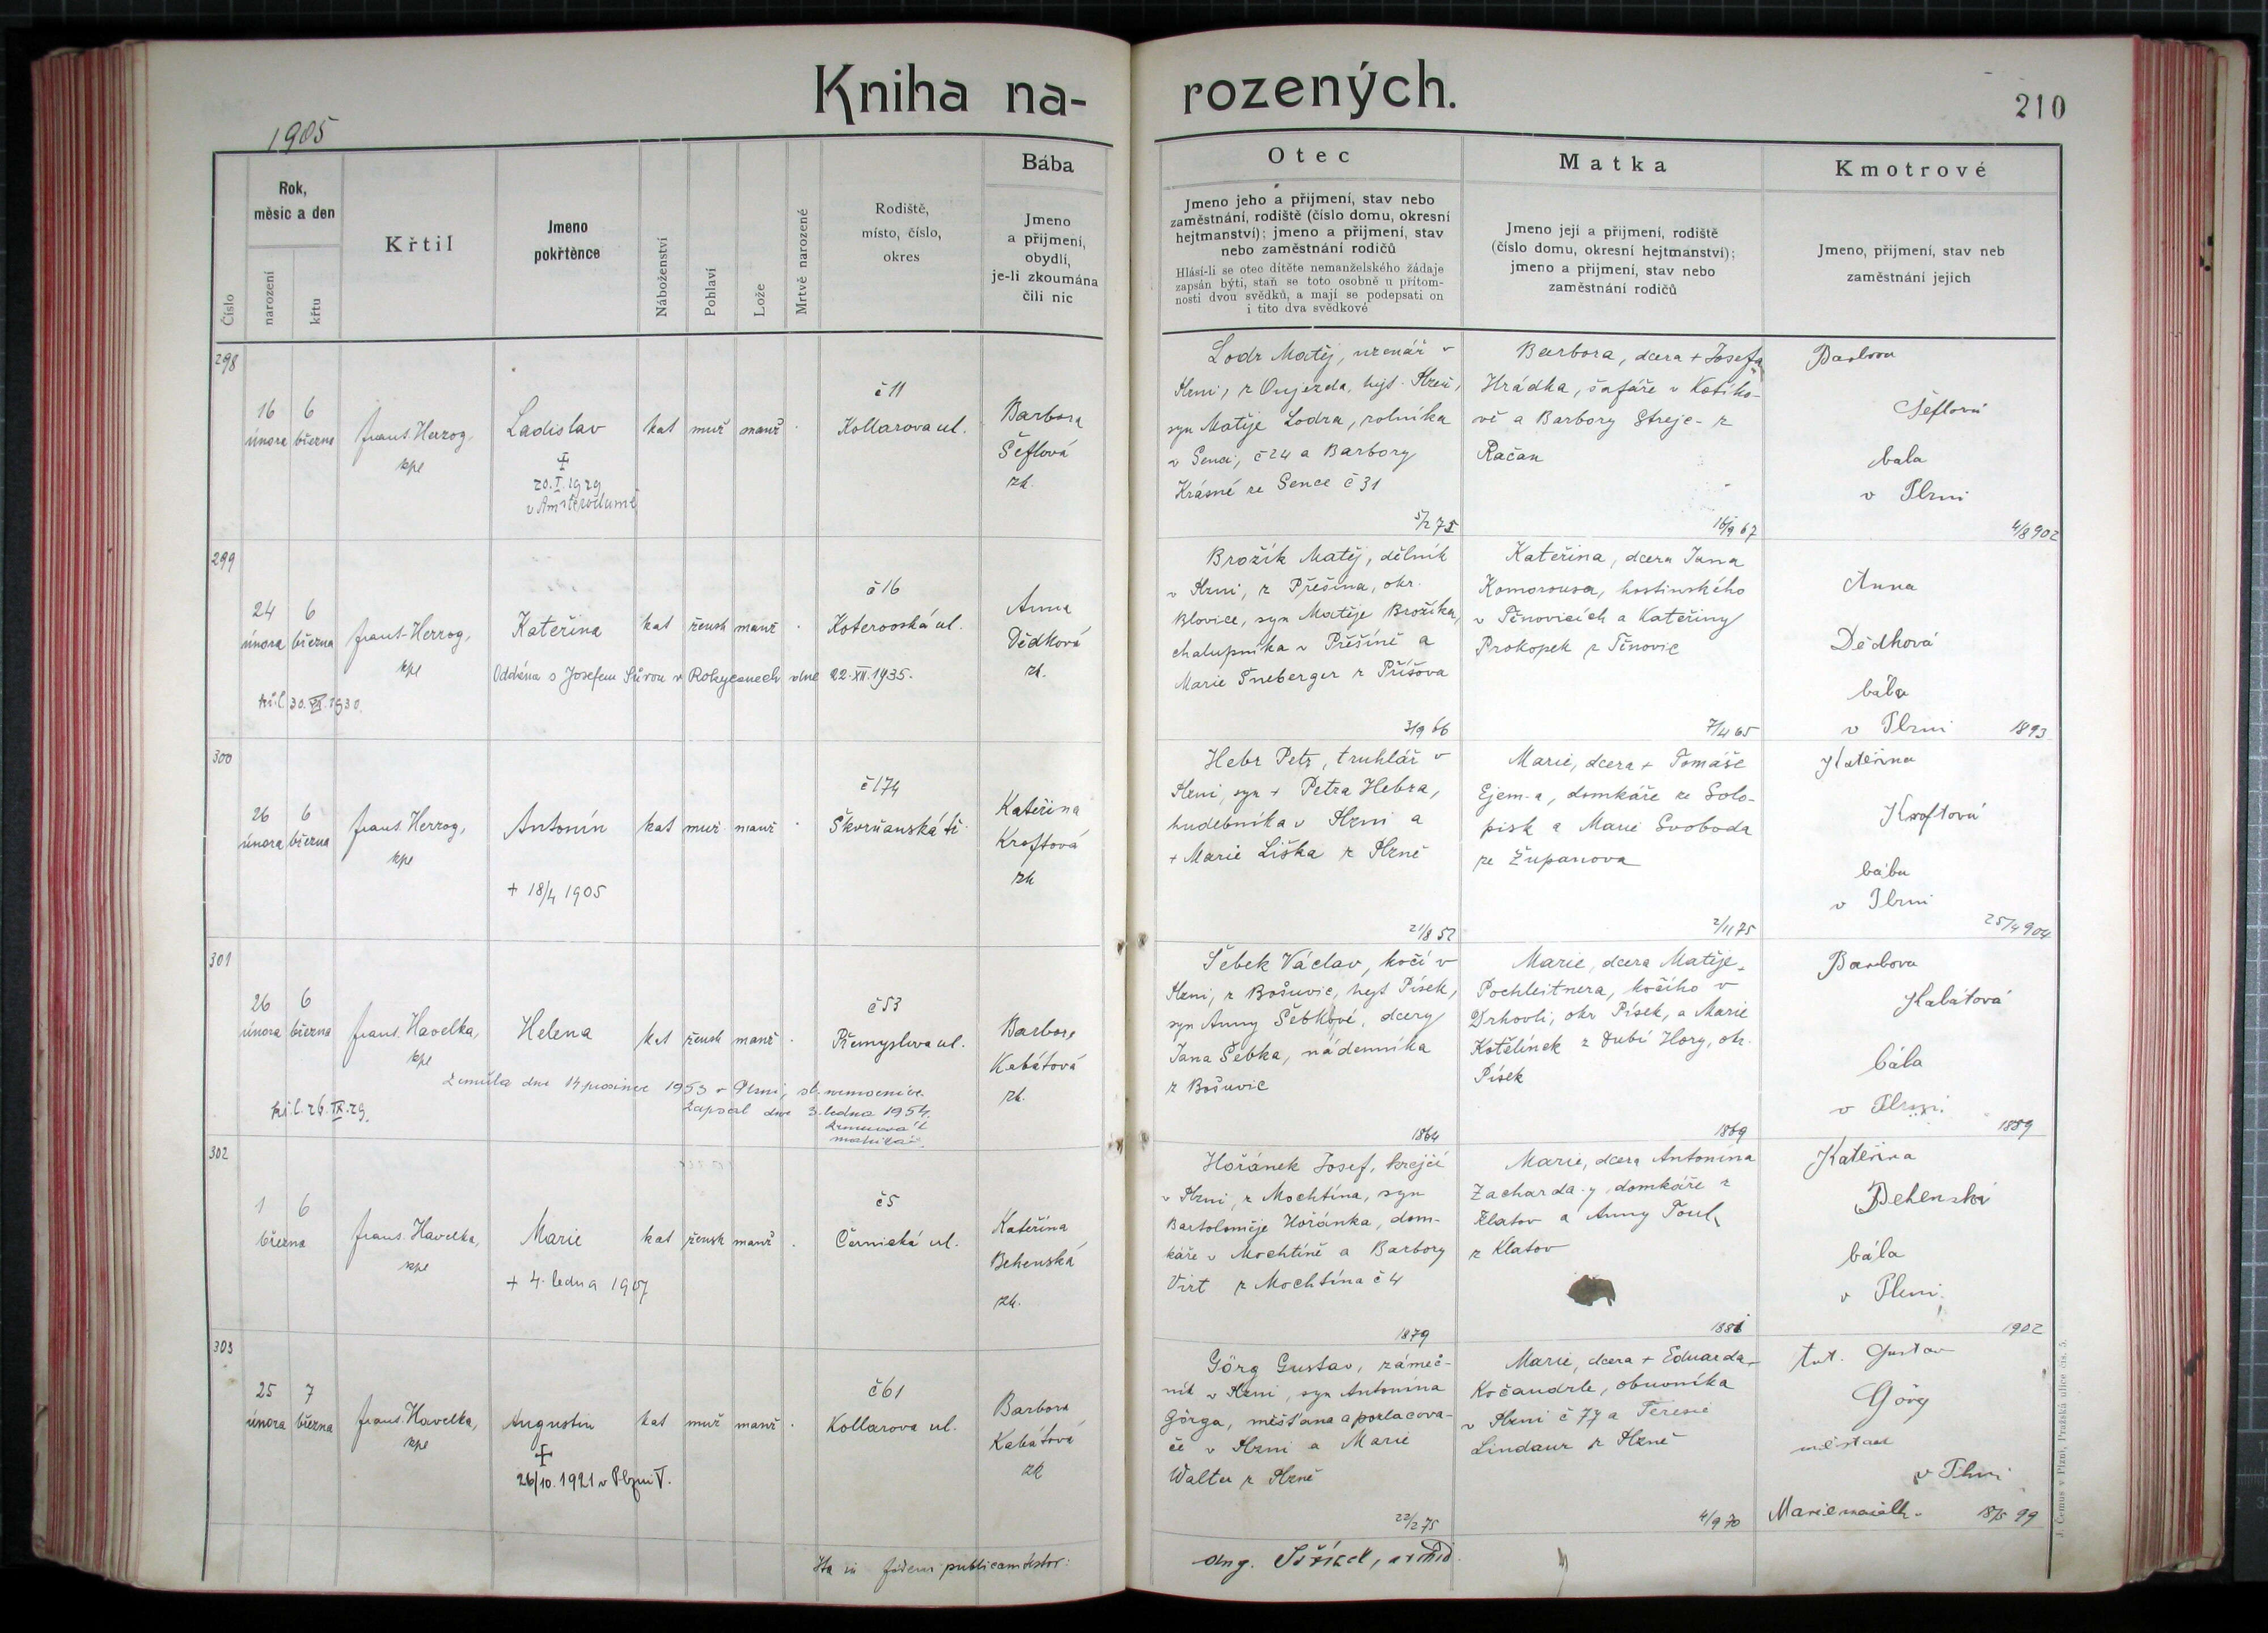 Kniha na-rozených.
210
1905
Číslo
Rok,
měsíc a den
narození
křtu
Křtil
Jmeno
pokřtěnce
Náboženství
Pohlaví
Lože
Mrtvě narozené
Rodiště,
místo, číslo,
okres
Bába
Jmeno
a přijmení,
obydlí,
je-li zkoumána
čili nic
Otec
Jmeno jeho a přijmení, stav nebo
zaměstnání, rodiště (číslo domu, okresní
hejtmanství); jmeno a přijmení, stav
nebo zaměstnání rodičů
Hlásí-li se otec dítěte nemanželského žádaje
zapsán býti, staň se toto osobně u přítom-
nosti dvou svědků, a mají se podepsati on
i tito dva svědkové
Matka
Jmeno její a přijmení, rodiště
(číslo domu, okresní hejtmanství);
jmeno a přijmení, stav nebo
zaměstnání rodičů
Kmotrové
Jmeno, přijmení, stav neb
zaměstnání jejich
298
16 února
6 března
frant. Herzog,
kpl
Ladislav
20. I. 1929
v Amsterodamě
kat
muž
manž
č 11
Kollarova ul.
Barbora
Šeflová
zk.
Lodr Matěj, uzenář v
Plzni, z Oujezda, hejt. Plzeň,
syn Matěje Lodra, rolníka
v Senci, č 24 a Barbory
Krásné ze Sence č 31
5/2 75
Barbora, dcera + Josefa
Hrádka, šafáře v Kotiko-
vě a Barbory Streje- z
Račan
16/9 67
Barbora
Šeflová
bába
v Plzni
4/8 902
299
24 února
6 března
frant. Herzog,
kpl
Kateřina
kat
žensk
manž
č 16
Koterovská ul.
Anna
Dědková
zk.
Oddána s Josefem Sůvou v Rokycanech dne 22. XII. 1935.
kř. l. 30. XII. 1930.
Brožík Matěj, dělník
v Plzni, z Přešína, okr.
Blovice, syn Matěje Brožíka,
chalupníka v Přešíně a
Marie Šneberger z Příšova
3/9 66
Kateřina, dcera Jana
Komorousa, hostinského
v Těnovicích a Kateřiny
Prokopek z Těnovic
7/4 65
Anna
Dědková
bába
v Plzni
1893
300
26 února
6 března
frant. Herzog,
kpl
Antonín
+ 18/4 1905
kat
muž
manž
č 174
Škvrňanská tř.
Kateřina
Kroftová
zk
Hebr Petr, truhlář v
Plzni, syn + Petra Hebra,
hudebníka v Plzni a
+ Marie Liška z Plzně
21/8 52
Marie, dcera + Tomáše
Ejem-a, domkáře ze Solo-
pisk a Marie Svoboda
ze Županova
2/11 75
Kateřina
Kroftová
bába
v Plzni
25/4 904
301
26 února
6 března
frant. Havelka,
kpl
Helena
kat
žensk
manž
č 53
Přemyslova ul.
Barbora
Kabátová
zk.
Zemřela dne 14 prosince 1953 v Plzni, st. nemocnice.
Zapsal dne 3. ledna 1954.
matrikář.
kř. l. 26. IX. 29.
Šebek Václav, kočí v
Plzni, z Bošovic, hejt Písek,
syn Anny Šebkové, dcery
Jana Šebka, nádenníka
z Bošovic
1864
Marie, dcera Matěje
Pochleitnera, kočího v
Drhovli, okr Písek, a Marie
Kotělínek z Dubí Hory, ok.
Písek
1869
Barbora
Kabátová
bába
v Plzni
1889
302
1 března
6
frant. Havelka,
kpl
Marie
+ 4. ledna 1907
kat
žensk
manž
č 5
Černická ul.
Kateřina
Behenská
zk.
Hořánek Josef, krejčí
v Plzni, z Mochtína, syn
Bartoloměje Hořánka, dom-
káře v Mochtíně a Barbory
Virt z Mochtína č 4
1879
Marie, dcera Antonína
Zacharda-y, domkáře z
Klatov a Anny Toul
z Klatov
1881
Kateřina
Behenská
bába
v Plzni
1902
303
25 února
7 března
frant. Havelka,
kpl
Augustin
26/10. 1921 v Plzni V.
kat
muž
manž
č 61
Kollarova ul.
Barbora
Kabátová
zk
Görg Gustav, zámeč-
ník v Plzni, syn Antonína
Görga, měšťana a pozlacova-
če v Plzni a Marie
Walter z Plzně
22/2 75
Marie, dcera + Eduarda
Kočandrle, obuvníka
v Plzni č 77 a Terezie
Lindaur z Plzně
4/9 70
Ant. Gustav
Görg
měšťan
v Plzni
Marie manželk.
18/5 99
Ita in fidem publicam testor:
Aug.
J. Černus v Plzni, Pražská ulice čís. 5.